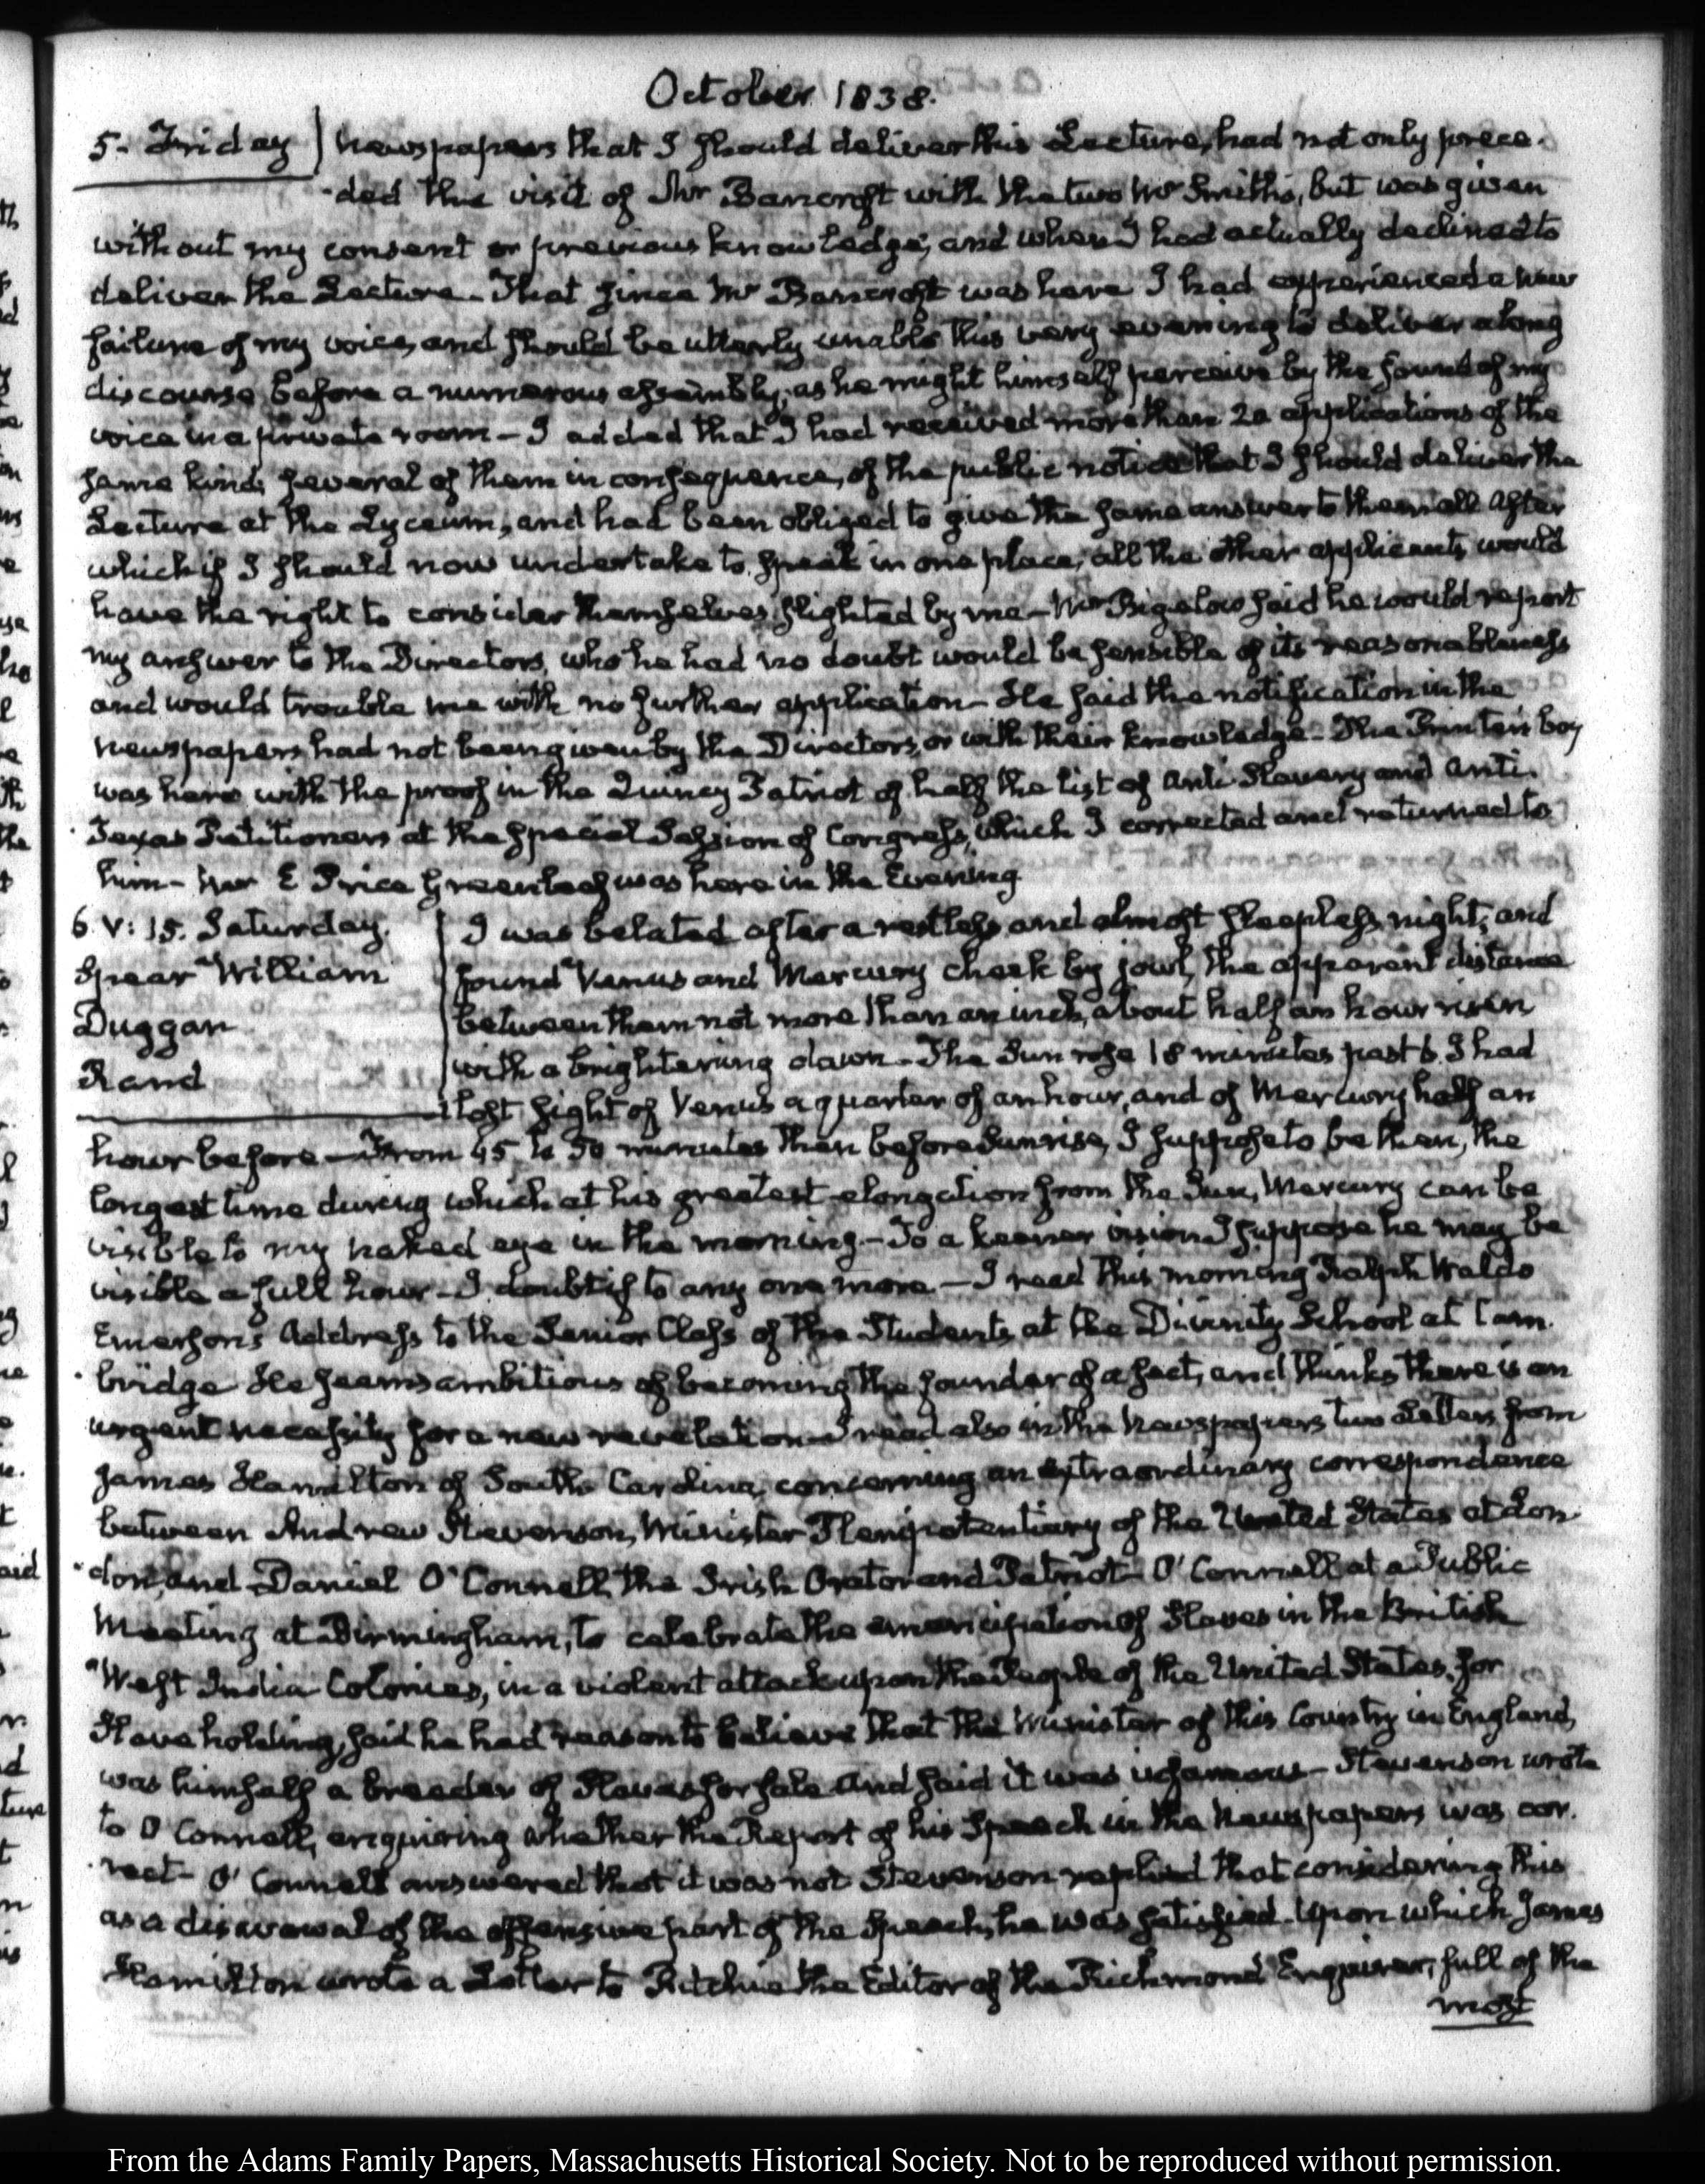 October 1838.
5. Friday
newspapers that I should deliver this Lecture, had not only prece-
-ded the visit of Mr Bancroft with the two Mr Smiths, but was given
without my consent or previous knowledge, and when I had actually declined to
deliver the Lecture. That since Mr Bancroft was here I had experienced a new
failure of my voice, and should be utterly unable this very evening to deliver a long
discourse before a numerous assembly; as he might himself perceive by the sound of my
voice in a private room – I added that I had received more than 20 applications of the
same kind, several of them in consequence, of the public notice that I should deliver the
Lecture at the Lyceum, and had been obliged to give the same answer to them all After
which if I should now undertake to speak in one place, all the other applicants would
have the right to consider themselves slighted by me – Mr Bigelow said he would report
my answer to the Directors, who he had no doubt would be sensible of its reasonableness
and would trouble me with no further application – He said the notification in the
newspapers had not been given by the Directors, or with their knowledge – The Printer's boy
was here with the proof in the Quincy Patriot of half the list of Anti-Slavery and Anti-
-Texas Petitioners at the special Session of Congress, which I corrected and returned to
him – Mr E Price Greenleaf was here in the Evening
6. V: 15. Saturday.
Spear William
Duggan
Rand
I was belated after a restless and almost sleepless night, and
found Venus and Mercury cheek by jowl, the apparent distance
between them not more than an inch, about half an hour risen
with a brightening dawn – The Sun rose 18 minutes past 6. I had
lost sight of Venus a quarter of an hour, and of Mercury half an
hour before – From 45 to 50 minutes then before Sunrise, I suppose to be then, the
longest time during which at his greatest elongation from the Sun, Mercury can be
visible to my naked eye in the morning – To a keener vision I suppose he may be
visible a full hour – I doubt if to any one more – I read this morning Ralph Waldo
Emerson's Address to the Senior Class of the Students at the Divinity School at Cam-
-bridge He seems ambitious of becoming the founder of a sect, and thinks there is an
urgent necessity for a new revelation – I read also in the Newspapers two Letters from
James Hamilton of South Carolina, concerning an extraordinary correspondence
between Andrew Stevenson, Minister Plenipotentiary of the United States at Lon-
-don, and Daniel O'Connell, the Irish Orator and Patriot – O'Connell at a Public
Meeting at Birmingham, to celebrate the emancipation of Slaves in the British
West India Colonies, in a violent attack upon the People of the United States, for
Slave holding, said he had reason to believe that the Minister of this Country in England,
was himself a breeder of Slaves for sale and said it was infamous – Stevenson wrote
to O'Connell, enquiring whether the Report of his Speech in the Newspapers was cor-
-rect – O'Connell answered that it was not Stevenson replied that considering this
as a disavowal of the offensive part of the Speech, he was satisfied – Upon which James
Hamilton wrote a Letter to Ritchie the Editor of the Richmond Enquirer, full of the
most
From the Adams Family Papers, Massachusetts Historical Society. Not to be reproduced without permission.